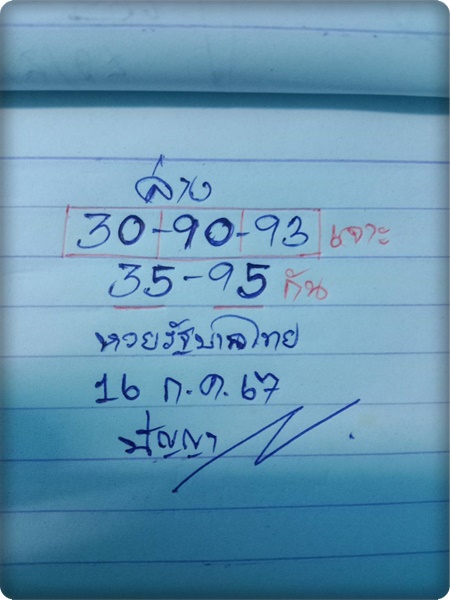 ล่าง
30-90-93 เจาะ
35-95 กัน
หวยรัฐบาลไทย
16 ก.ค. 67
ปัญญา